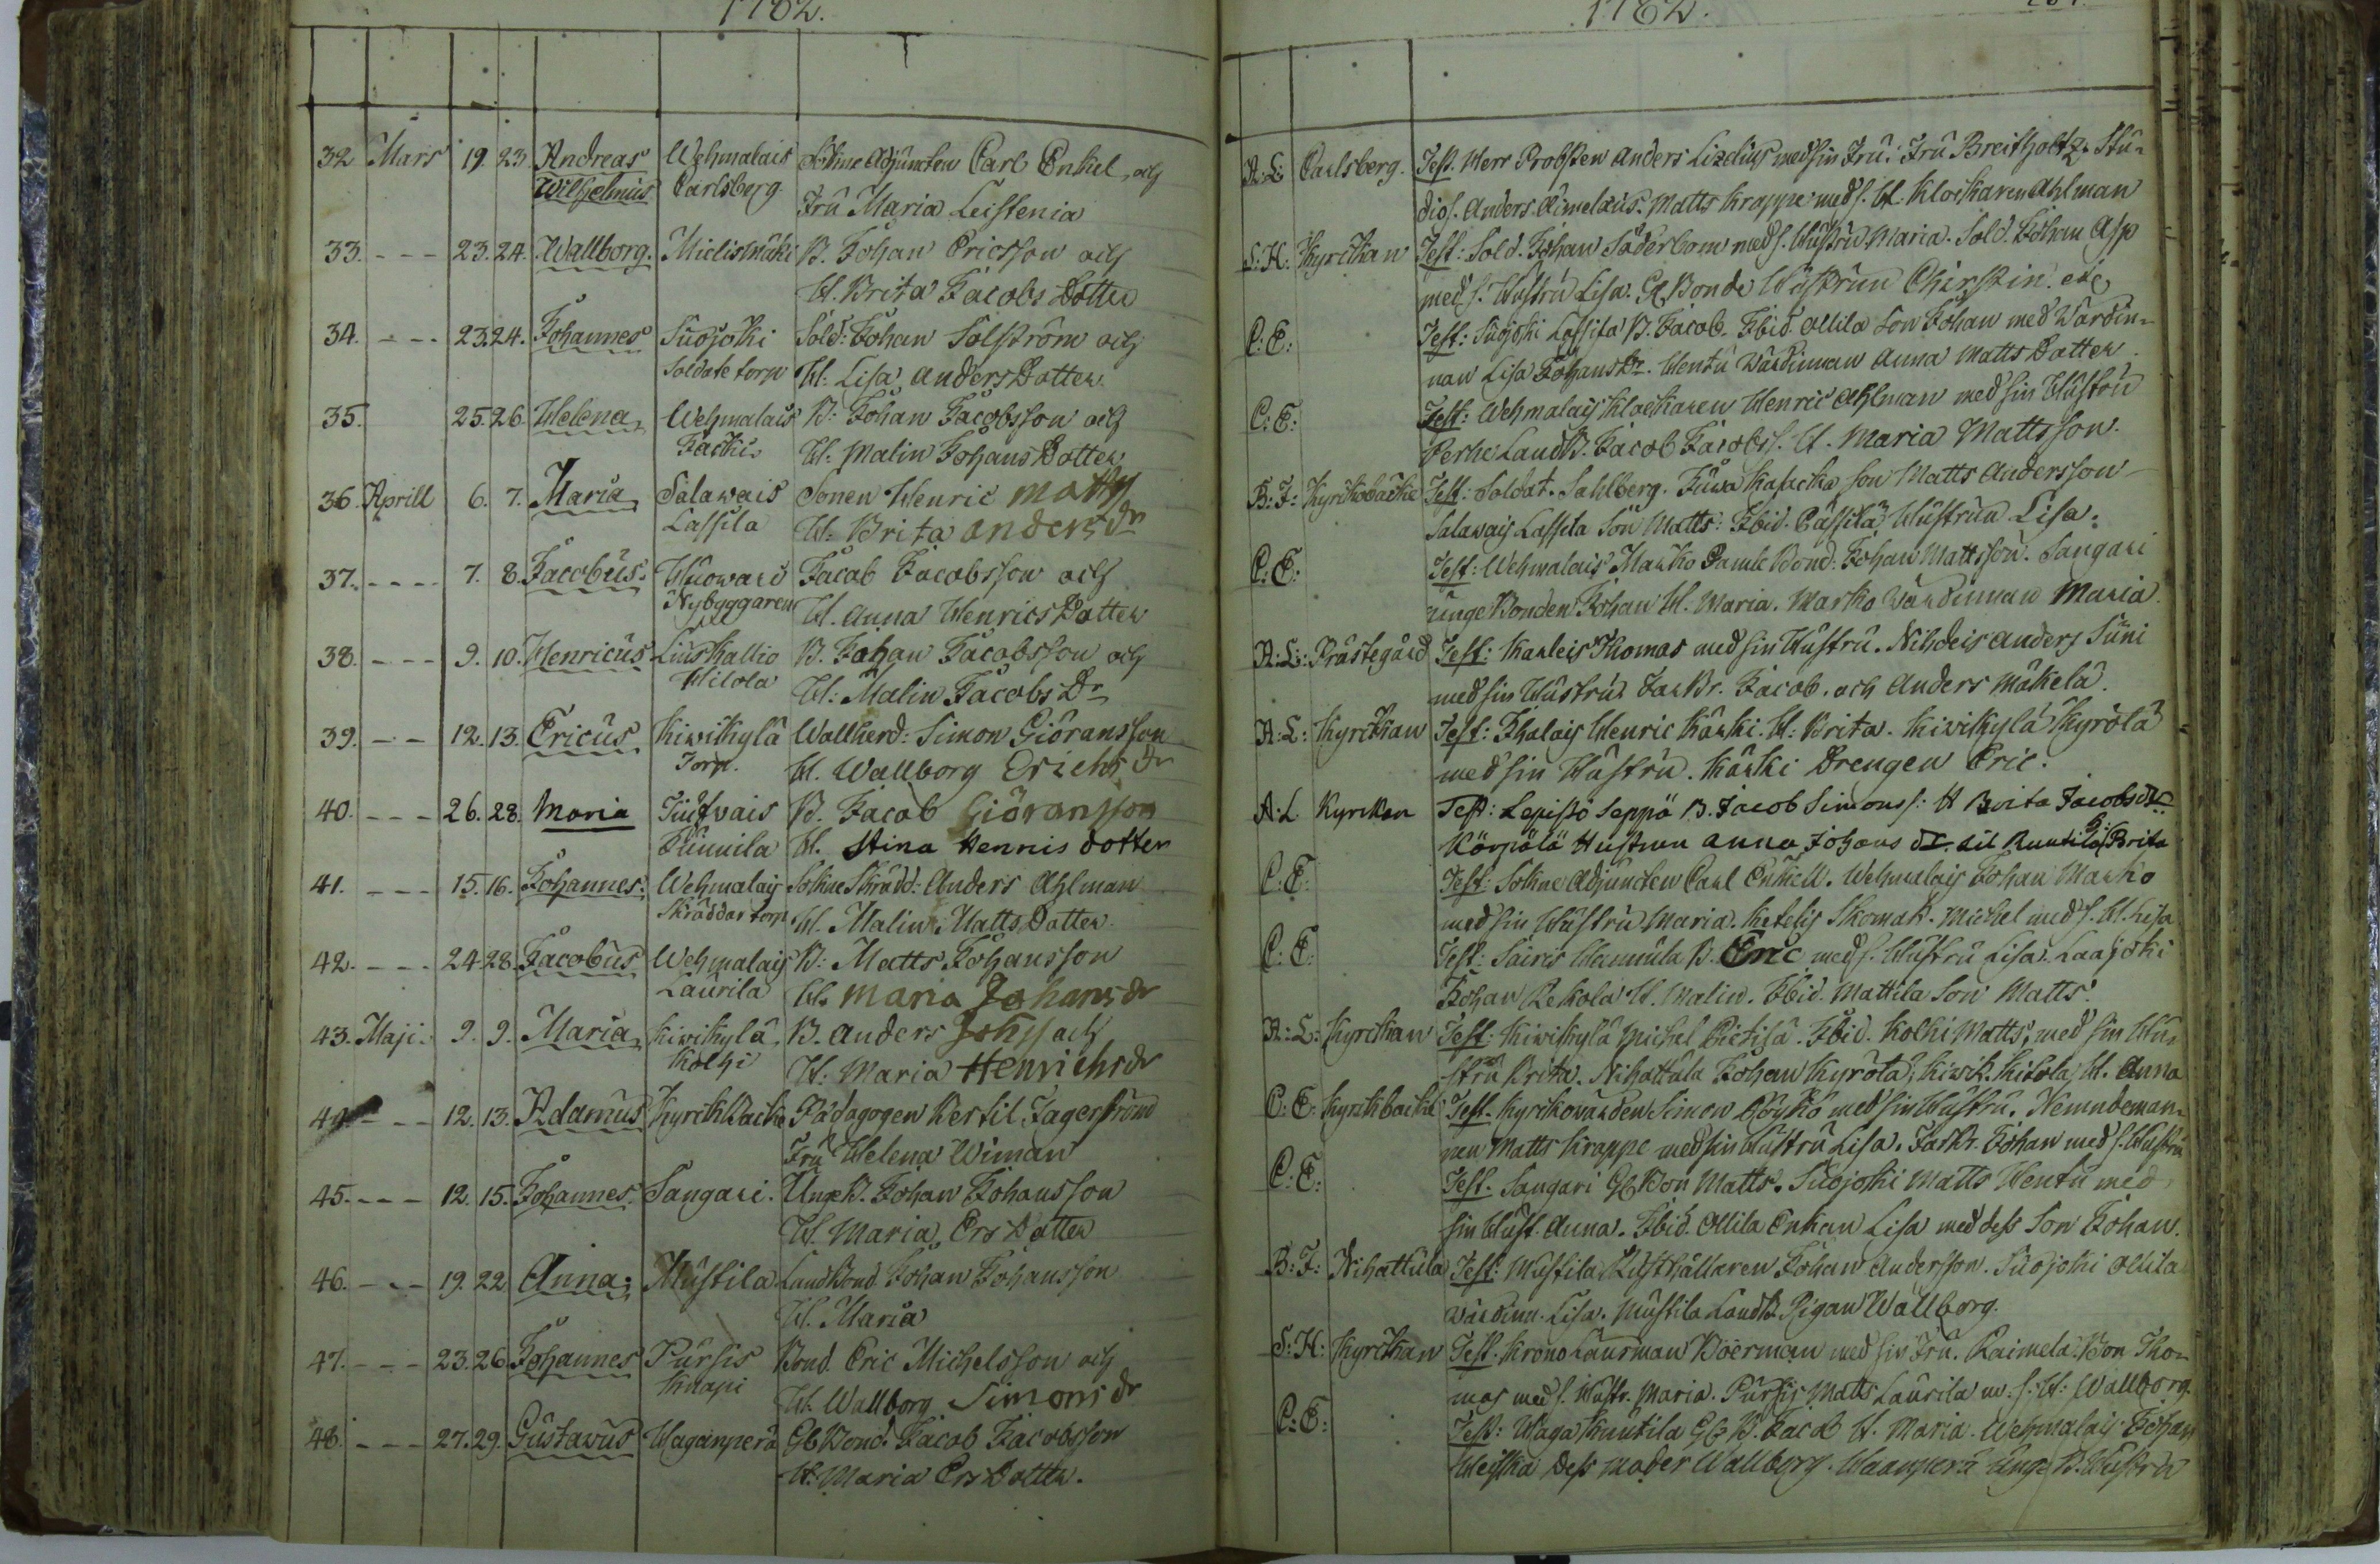 1762.
32 Mars 19. 23. Andreas Wehmalais Sokne Adjuncten Carl Enkel, och
Wilhelmus Carlsberg Fru Maria Leistenia
33. - - - 23. 24. Wallborg. Mielismäki B. Johan Ericsson och
H. Brita Jacobs Dotter
34. - - - 23. 24. Johannes Suojoki Sold: Johan Solström och
Soldate torp H: Lisa Anders Dotter
35. 25. 26. Helena Wehmalais B: Johan Jacobsson och
Jacki H: Malin Johans Dotter
36. Aprill 6. 7. Maria Salawais Sonen Henric Matts
Lassila H: Brita anders dr
37. - - - - 7. 8. Jacobus Huowari Jacob Jacobsson och
Nybyggaren H. Anna Henrics Dotter
38. - - - 9. 10. Henricus Liuskallio B. Johan Jacobsson och
Hilola H: Malin Jacobs Dr
39. - - 12. 13. Ericus Kiwikylä Wallherd: Simon Giöransson
Torp. H. Wallborg Erichs dr
40. - - - 26. 28. Maria Jufwais B. Jacob Giöransson
Junnila H. Stina Hennis dotter
41. - - - 15. 16. Johannes: Wehmalais Sokne Skrädd: Anders Ahlman
Skräddar torp H. Malin Matts Dotter
42. - - - 24. 28. Jacobus Wehmalais B: Matts Johansson
Laurila H. Maria Johans dr
43. Maji. 9. 9. Maria Kiwikylä B. Anders Johss och
Kolhi H: Maria Henrichs dr
44 - - - 12. 13. Adamus Kyrckbacke Pädagogen Bertil Jagerström
Fru Helena Wiman
45. - - - 12. 15. Johannes. Sangari. Unge B. Johan Johansson
H. Maria Ers Dotter
46. - - - 19. 22 Anna: Mustila Land Bond Johan Johansson
H. Maria
47. - - - 23. 26. Johannes Pursis Bond. Eric Michelsson och
Knapi H. Wallborg Simons dr
48. - - - 27. 29. Gustavus Waganperä Gl Bond. Jacob Jacobsson
H. Maria Ers Dotter.
1762.
A: L: Carlsberg. Test. Herr Probsten Anders Lizelius med sin Fru: Fru Breitholtz. Stu-
dios. Anders Aimelæus. Matts Krappe med s. H. Klockaren Ahlman
S: H: Kyrckan Test: Sold. Johan Söderbom med s. Hustru Maria. Sold. Johan Asp
med s. Hustru Lisa. Gl Bonde Hustrun Chirstin.
C: E: Test: Suojoki Lassila B. Jacob. Ibid. Ollila Son Johan med Wärdin-
nan Lisa Johans Dr. Hentu Wärdinnan Anna Matts Dotter.
C: E: Test: Wehmalais Klockaren Henric Ahlman med sin Hustru
Perhe Land B. Jacob Jacobs s. H. Maria Mattsson.
B: J: Kyrckobacke Test: Soldat. Sahlberg. Juwa Kasacka son Matts Andersson
Salawais Lassila Son Matts: Ibid. Cassila Hustrun Lisa.
C: E: Test: Wehmalais Marko Gamle Bond. Johan Mattsson. Sangari
unge Bonden Johan H. Maria. Marko Wärdinnan Maria.
A: L: Prästegård Test: Karleis Thomas med sin Hustru. Nihdeis Anders Suni
med sin Hustru. Jacob. och Anders Mäkelä.
A: L: Kyrckan Test: Ihalais Henric Kärki. H: Brita. Kiwikylä Kyrölä
med sin Hustru. Kärki Drengen Eric.
A: L Kyrckan Test: Lepistö Seppä B. Jacob Simons s: H Brita Jacobs dr
Körpälä Hustrun Anna Johans dr. til Runtila Brita
C: E: Test: Sokne Adjuncten Carl Enkell. Wehmalais Johan Marko
med sin Hustru Maria. Ketelis Skomak. Michel med s. H. Lisa
C: E: Test: Sairis Hannula B. Eric med s. Hustru Lisa. Laajoki
Johan Rekola H. Malin. Ibid. Mattila Son Matts.
A: L: Kyrckan Test: Kiwikylä Michel Pietilä. Ibid. Kolhi Matts, med sin Hu-
stru Brita. Nihattula Johan Kyrölä, Kiwik. Hilola H. Anna
C: E: Kyrckbacke Test. Kyrckowärden Simon med sin Hustru. Nemndeman-
nen Matts Krappe med sin Hustru Lisa. Johan med s. Hustru
C: E: Test. Sangari Gl Bon Matts. Suojoki Matts Hentu med
sin Hust. Anna. Ibid. Ollila Enkan Lisa med dess Son Johan.
B: J: Nihattula Test: Mustila Rusthållaren Johan Andersson. Suojoki Ollila
wärdinn. Lisa. Mustila Land B. Pigan Wallborg.
S: H: Kyrckan Test. Krono Länsman Boerman med sin Fru. Raimela Bon Tho-
mas med s. Hustr. Maria. Pursis Matts Laurila m. s. H: Wallborg.
C: E: Test: Waga Knutila Gl B. Jacob H. Maria. Wehmalais Johan
Heiska dess moder Wallborg. Waanperä unge B. Hustru